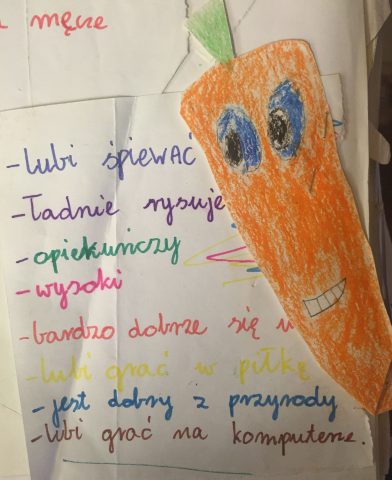 męcze
- lubi śpiewać
- Ładnie rysuje
- opiekuńczy
- wysoki
- bardzo dobrze się
- lubi grać w piłkę
- jest dobry z przyrody
- lubi grać na komputerze.